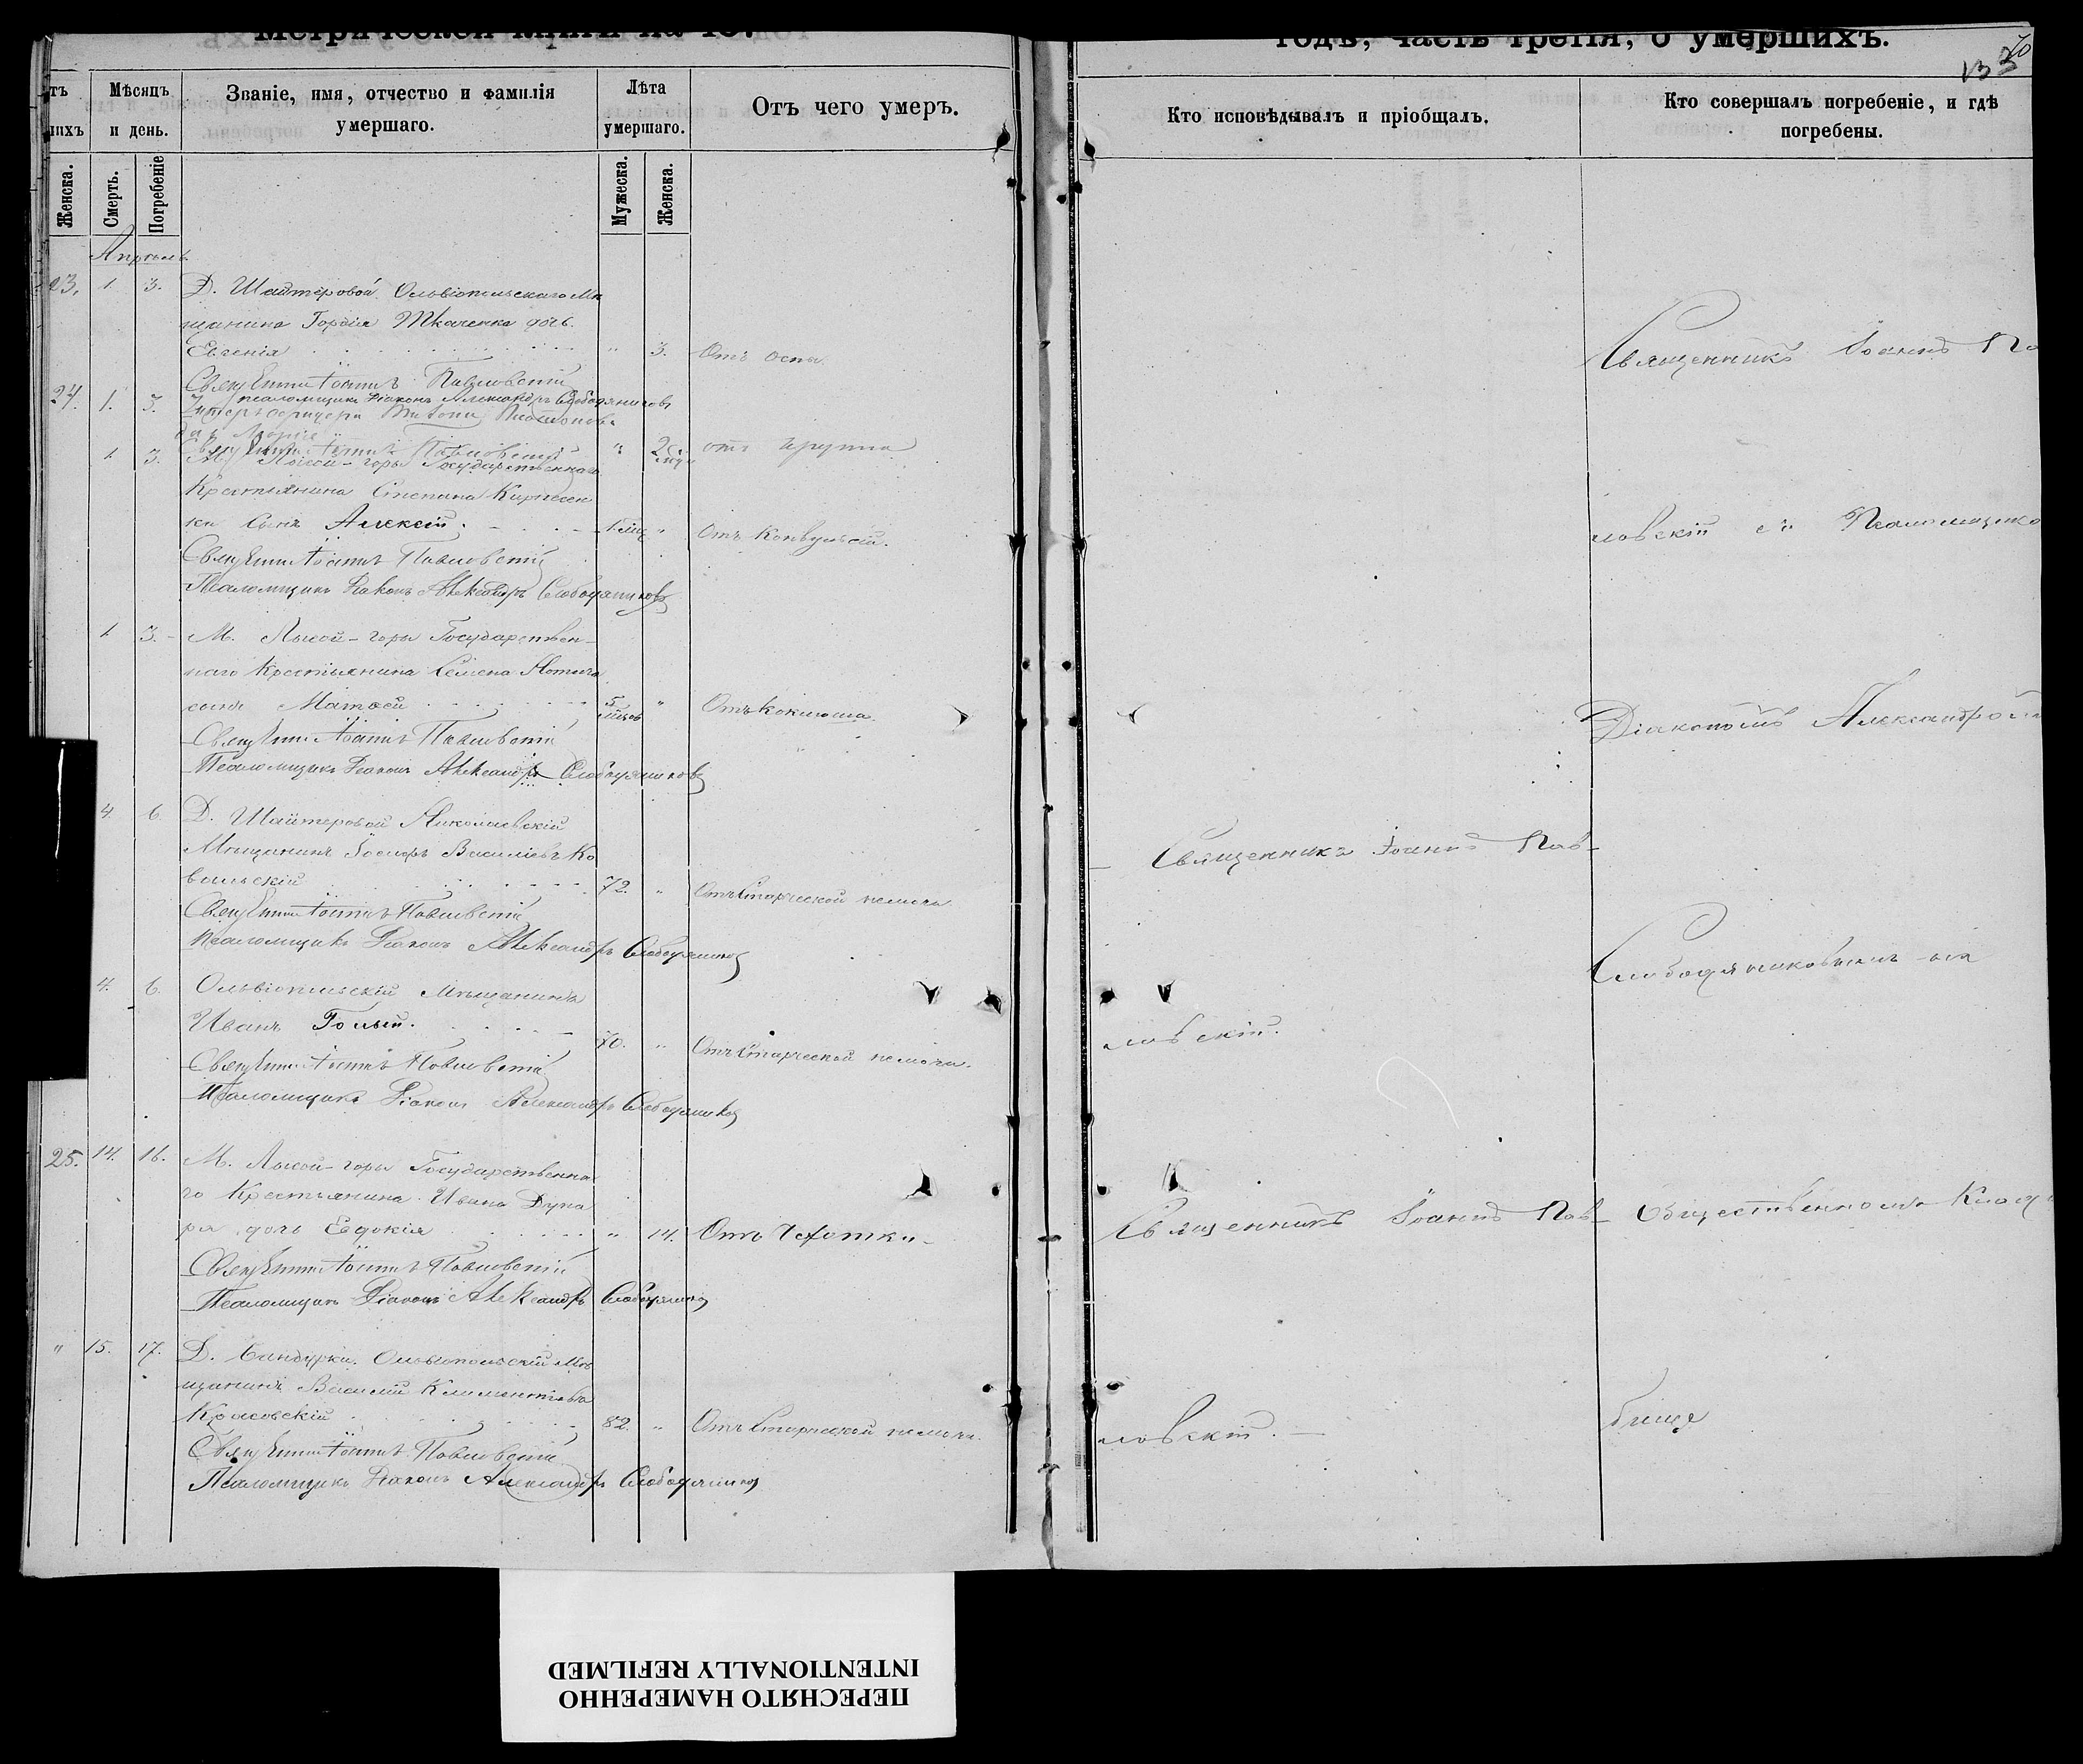 годѣ, часть третія, о умершихъ.
Мѣсяцъ и день.
Званіе, имя, отчество и фамилія умершаго.
Лѣта умершаго.
Отъ чего умеръ.
Кто исповѣдывалъ и пріобщалъ.
Кто совершалъ погребеніе, и гдѣ погребены.
Женска.
Смерть.
Погребеніе
Мужеска.
Женска.
Апрѣль
23. 1 3. Д. Шайтеровой Ольвіопольскаго Мѣ
щанина Гордія Ткаченка дочь
Евгенія " 3. Отъ оспы.
Священникъ Іоаннъ Павловскій
Псаломщикъ Діаконъ Александръ Слободяниковъ
24. 1. 3.
" 2 отъ крупа
Священникъ Іоаннъ Павловскій
1 3. М. Лысой-горы Государственнаго
Крестьянина Степана
ка сынъ Алексей. 1 " Отъ конвульсій.
Священникъ Іоаннъ Павловскій
Псаломщикъ Діаконъ Александръ Слободяниковъ
1 3. М. Лысой-горы Государствен-
наго Крестьянина Семена
сынъ Матвей 5 " Отъ коклюша.
Священникъ Іоаннъ Павловскій
Псаломщикъ Діаконъ Александръ Слободяниковъ
4. 6. Д. Шайтеровой Николаевскій
Мѣщанинъ Іосифъ Васильевъ Ко
вальскій 72. " Отъ Старческой немочи.
Священникъ Іоаннъ Павловскій
Псаломщикъ Діаконъ Александръ Слободяниковъ
4. 6. Ольвіопольскій Мѣщанинъ
Иванъ Голый. 70. " Отъ Старческой немочи.
Священникъ Іоаннъ Павловскій
Псаломщикъ Діаконъ Александръ Слободяниковъ
25. 14. 16. М. Лысой-горы Государственна
го Крестьянина Ивана Дуна
ря дочь Евдокія " 14. Отъ Чахотки.
Священникъ Іоаннъ Павловскій
Псаломщикъ Діаконъ Александръ Слободяниковъ
" 15. 17. Д. Бандурки. Ольвіопольскій Мѣ
щанинъ Василій Климентьевъ
Красовскій 82. " Отъ Старческой немочи.
Священникъ Іоаннъ Павловскій
Псаломщикъ Діаконъ Александръ Слободяниковъ
Священникъ Іоаннъ Пав-
ловскій.
Священникъ Іоаннъ Пав-
ловскій.
Священникъ Іоаннъ Па
ловскій съ Псаломщико
Діакономъ Александромъ
Слободяниковымъ на
Общественномъ Клад
бищѣ
ПЕРЕСНЯТО НАМЕРЕННО
INTENTIONALLY REFILMED